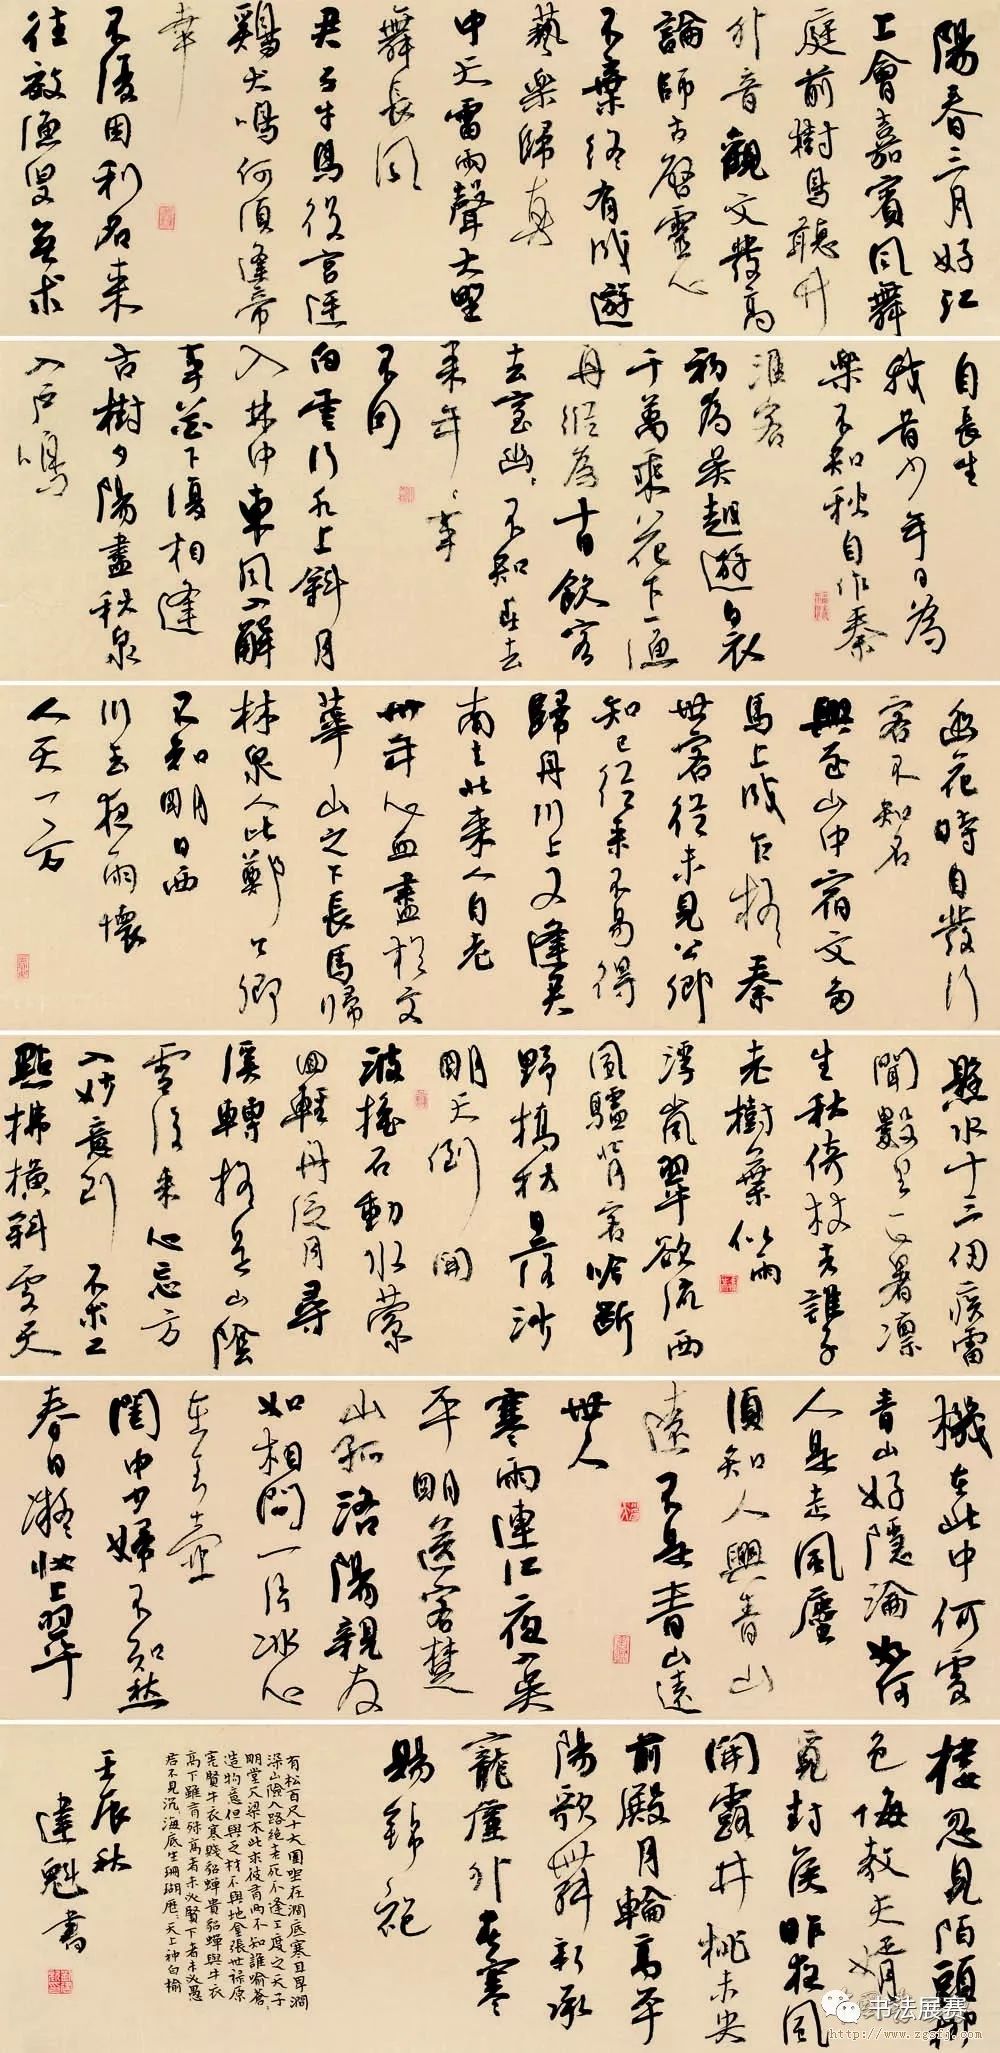 陽春三月好江
上會嘉賓風舞
庭前樹鳥聽井
外音觀文發高
論師古啟靈心
不棄終有成遊
藝樂歸真
中天雷雨聲大野
舞長風
君子牛馬役宮廷
鷄犬鳴何須逢帝
幸
不須因利名來
往放漁叟無求
自長生
我昔少年日為
樂不知秋自作秦
淮客
初為吳越遊白衣
千萬乘花下一漁
舟縱為十日飲客
去室幽幽不知春去
來年年
不自
白雲行水上斜月
入林中東風入解
事花下復相逢
古樹夕陽盡秋泉
入戶鳴
幽花時自發行
客不知名
興至山中宿文旬
馬上成自於秦
世客從未見公卿
知己從來不易得
歸舟川上又逢君
南去北來人自老
卅年心血盡於文
華山之下長馬歸
林泉人比鄭公卿
不知明日西
川去夜雨懷
人天一方
懸水十三仞疾雷
聞數里六暑凜
生秋倚杖去誰子
老樹葉似雨
浮嵐翠欲流西
風驢背客吟斷
野橋秋
明天倒開
波搖石動水縈
回輕舟泛月尋
溪轉疑是山陰
雪後來心忘方
入妙意到不求工
點拂橫斜處天
機在此中何處
青山好隱淪如何
人是走風塵
須知人與青山
遠不是青山遠
世人
寒雨連江夜入吳
平明送客楚
山孤洛陽親友
如相問一片冰心
在玉壺
閨中少婦不知愁
春日凝妝上翠
樓忽見陌頭柳
色悔教夫婿
覓封侯昨夜風
開露井桃未央
前殿月輪高平
陽歌舞新承
寵簾外春寒
賜錦袍
有松百尺大十圍坐在澗底寒且卑澗
深山險人路絕老死不逢工度之天子
明堂欠梁木此求彼有兩不知誰喻蒼
造物意但與之材不與地金張世祿原
憲賢牛衣寒賤貂蟬貴貂蟬與牛衣
高下雖有殊高者未必賢下者未必愚
君不見沉海底生珊瑚歷歷天上種白榆
壬辰秋
達魁書
书法展赛
http://www.zgsfj.com